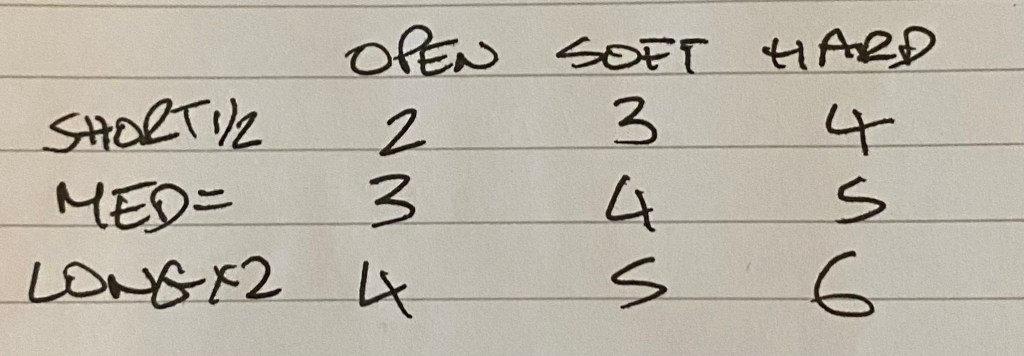 OPEN SOFT HARD
SHORT 1/2 2 3 4
MED= 3 4 5
LONG x2 4 5 6